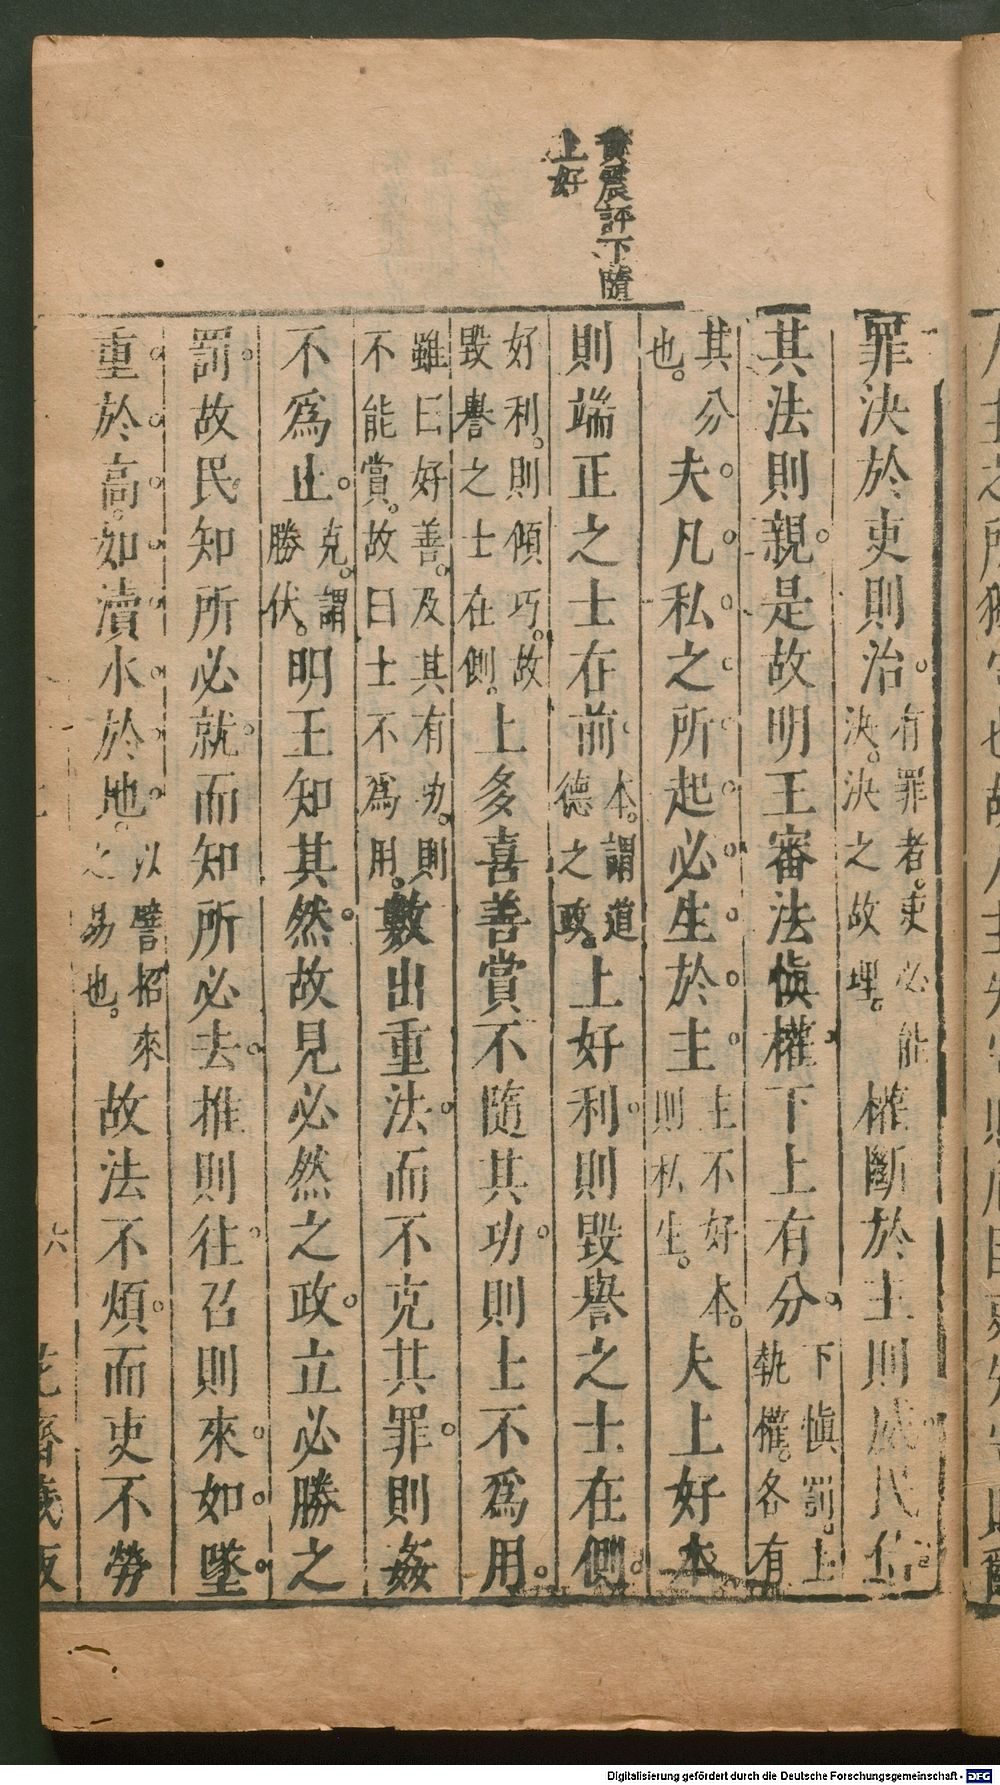 黃震評下隨
上好
罪決於吏則治。有罪者。吏必能決。決之故理。權斷於主則威民信
其法則親。是故明王審法慎權下上有分。下慎罰。上執權。各有
其分也。夫凡私之所起必生於主。主不好本。則私生。夫上好本
則端正之士在前。本。謂道德之政。上好利則毀譽之士在側。
好利。則傾巧。故毀譽之士在側。上多喜善賞不隨其功。則上不爲用。
雖曰好善。及其有功。則不能賞。故曰士不爲用。數出重法。而不克其罪。則姦
不爲止。克。謂勝伏。明王知其然。故見必然之政。立必勝之
罰。故民知所必就。而知所必去。推則往。召則來。如墜
重於高。如瀆水於地。以譬招來之易也。故法不煩。而吏不勞
六
花齋藏版
Digitalisierung gefördert durch die Deutsche Forschungsgemeinschaft - DFG